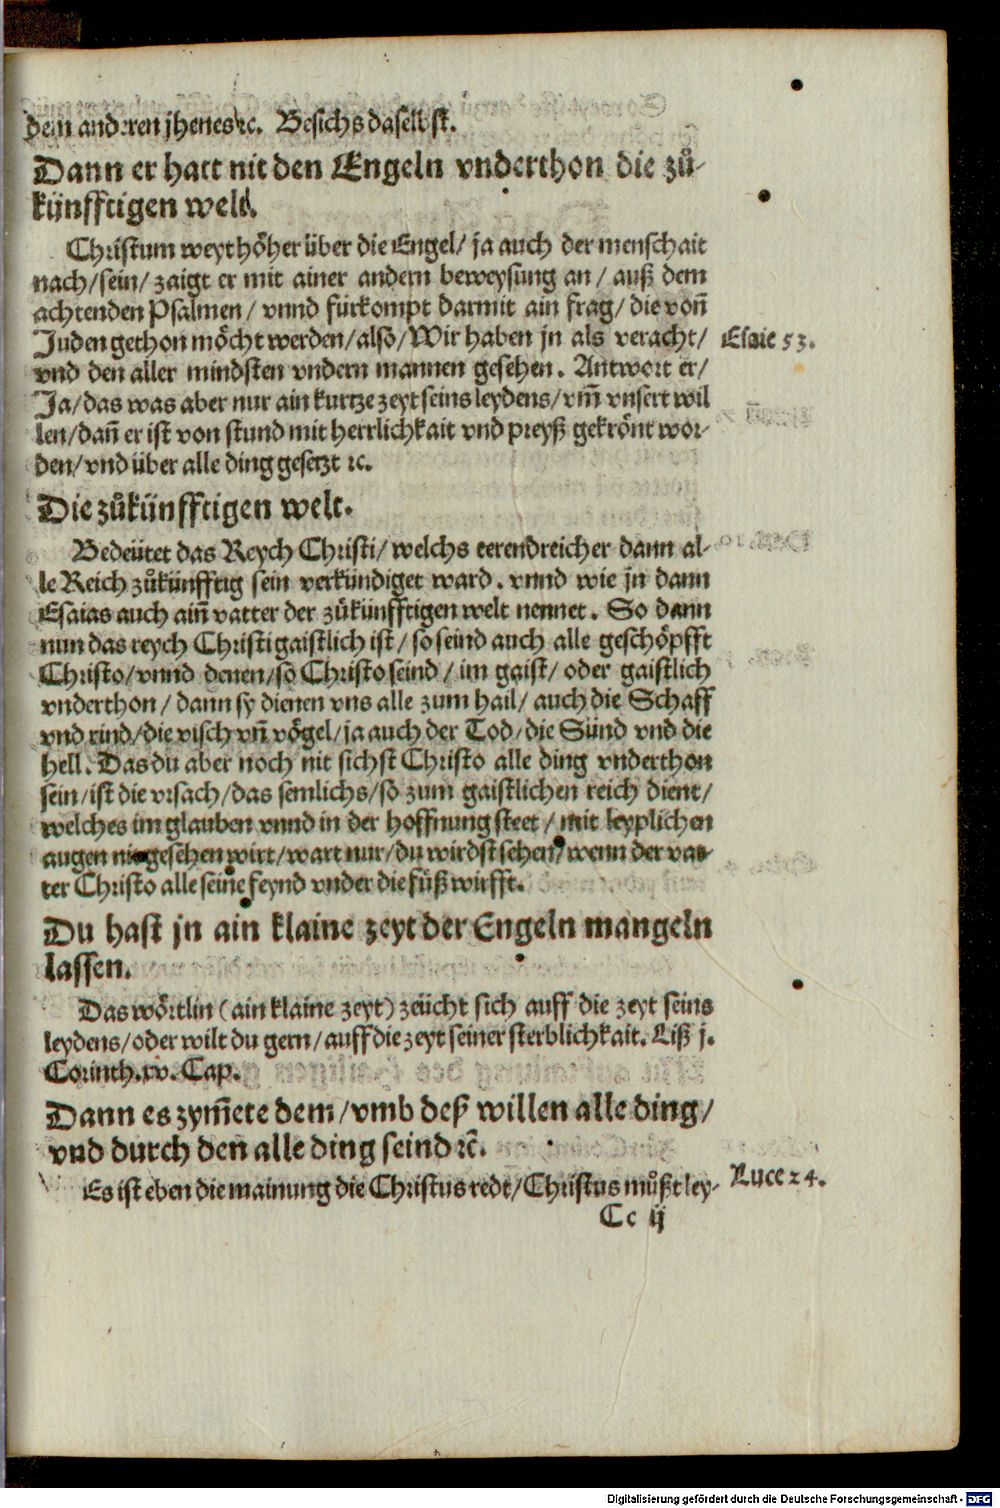 dem anderen jhenes ꝛc. Besichs dasellbst.
Dann er hatt nit den Engeln vnderthon die zů-
künfftigen welt.
Christum weyt höher über die Engel/ ja auch der menschait
nach/sein/ zaigt er mit ainer andern beweysung an/ auß dem
achtenden Psalmen/ vnnd fürkompt darmit ain frag/ die von̄
Juden gethon möcht werden/also/Wir haben jn als veracht/
Esaie 53.
vnd den aller mindsten vndern mannen gesehen. Antwort er/
Ja/das was aber nur ain kurtze zeyt seins leydens/vm̄ vnsert wil
len/dan̄ er ist von stund mit herrlichkait vnd preyß gekrönt wor-
den/vnd über alle ding gesetzt ꝛc.
Die zůkünfftigen welt.
Bedeütet das Reych Christi/ welchs eerendreicher dann al-
le Reich zůkünfftig sein verkündiget ward. vnnd wie jn dann
Esaias auch ain̄ vatter der zůkünfftigen welt nennet. So dann
nun das reych Christi gaistlich ist/ so seind auch alle geschöpfft
Christo/vnnd denen/so Christo seind/ im gaist/ oder gaistlich
vnderthon/ dann sy dienen vns alle zum hail/ auch die Schaff
vnd rind/die visch vn̄ vögel/ja auch der Tod/die Sünd vnd die
hell. Das du aber noch nit sichst Christo alle ding vnderthon
sein/ist die vrsach/das semlichs/so zum gaistlichen reich dient/
welches im glauben vnnd in der hoffnung steet/ mit leyplichen
augen nit gesehen wirt/wart nur/du wirdst sehen/wenn der vat-
ter Christo alle seine feynd vnder die füß wirfft.
Du hast jn ain klaine zeyt der Engeln mangeln
lassen.
Das wörtlin (ain klaine zeyt) zeücht sich auff die zeyt seins
leydens/oder wilt du gern/auff die zeyt seiner sterblichkait. Liß j.
Corinth.xv. Cap.
Dann es zym̄ete dem/vmb deß willen alle ding/
vnd durch den alle ding seind ꝛc̄.
Es ist eben die mainung die Christus redt/Christus můßt ley-
Luce 24.
Cc ij
Digitalisierung gefördert durch die Deutsche Forschungsgemeinschaft - DFG